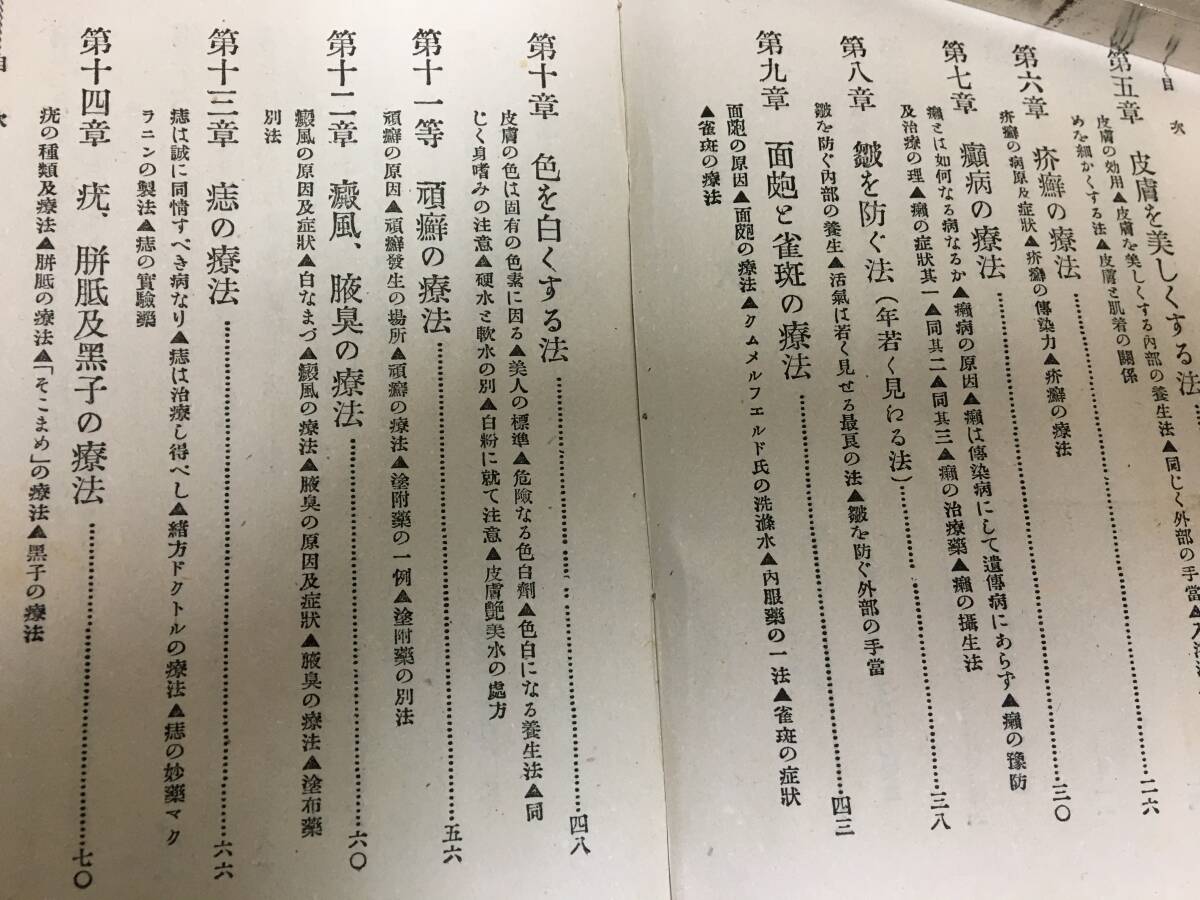 目次
第五章 皮膚を美しくする法
皮膚の効用▲皮膚を美しくする內部の養生法▲同じく外部の手當▲
めを細かくする法▲皮膚と肌着の關係
二六
第六章 疥癬の療法
三〇
疥癬の病原及症狀▲疥癬の傳染力▲疥癬の療法
第七章 癩病の療法
三八
癩とは如何なる病なるか▲癩病の原因▲癩は傳染病にして遺傳病にあらず▲癩の豫防
及治療の理▲癩の症狀其一▲同其二▲同其三▲癩の治療藥▲癩の攝生法
第八章 皺を防ぐ法(年若く見ゆる法)
四三
皺を防ぐ內部の養生▲活氣は若く見せる最良の法▲皺を防ぐ外部の手當
第九章 面皰と雀斑の療法
面皰の原因▲面皰の療法▲クムメルフエルド氏の洗滌水▲內服藥の一法▲雀斑の症狀
▲雀斑の療法
第十章 色を白くする法
四八
皮膚の色は固有の色素に因る▲美人の標準▲危險なる色白劑▲色白になる養生法▲同
じく身嗜みの注意▲硬水と軟水の別▲白粉に就て注意▲皮膚艶美水の處方
第十一等 頑癬の療法
五六
頑癬の原因▲頑癬發生の場所▲頑癬の療法▲塗附藥の一例▲塗附藥の別法
第十二章 癜風、腋臭の療法
六〇
癜風の原因及症狀▲白なまづ▲癜風の療法▲腋臭の原因及症狀▲腋臭の療法▲塗布藥
別法
第十三章 痣の療法
六六
痣は誠に同情すべき病なり▲痣は治療し得べし▲緖方ドクトルの療法▲痣の妙藥マク
ラニンの製法▲痣の實驗藥
第十四章 疣、胼胝及黑子の療法
七〇
疣の種類及療法▲胼胝の療法▲「そこまめ」の療法▲黑子の療法
目次